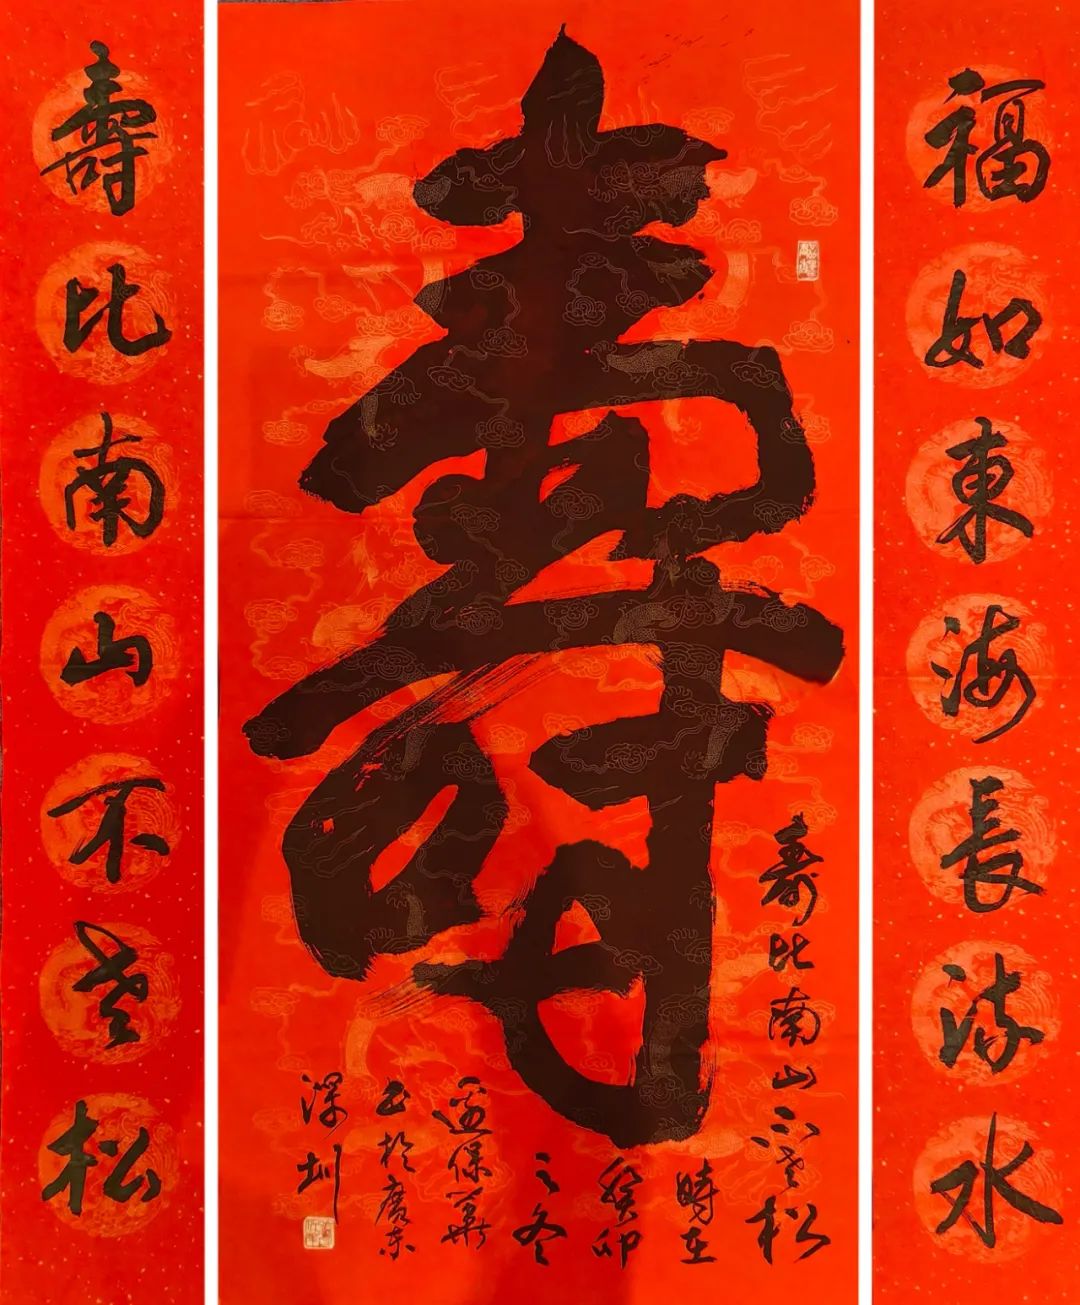 福如東海長流水
壽
壽比南山不老松
時在
癸卯
之冬
保華
書於廣東
深圳
壽比南山不老松